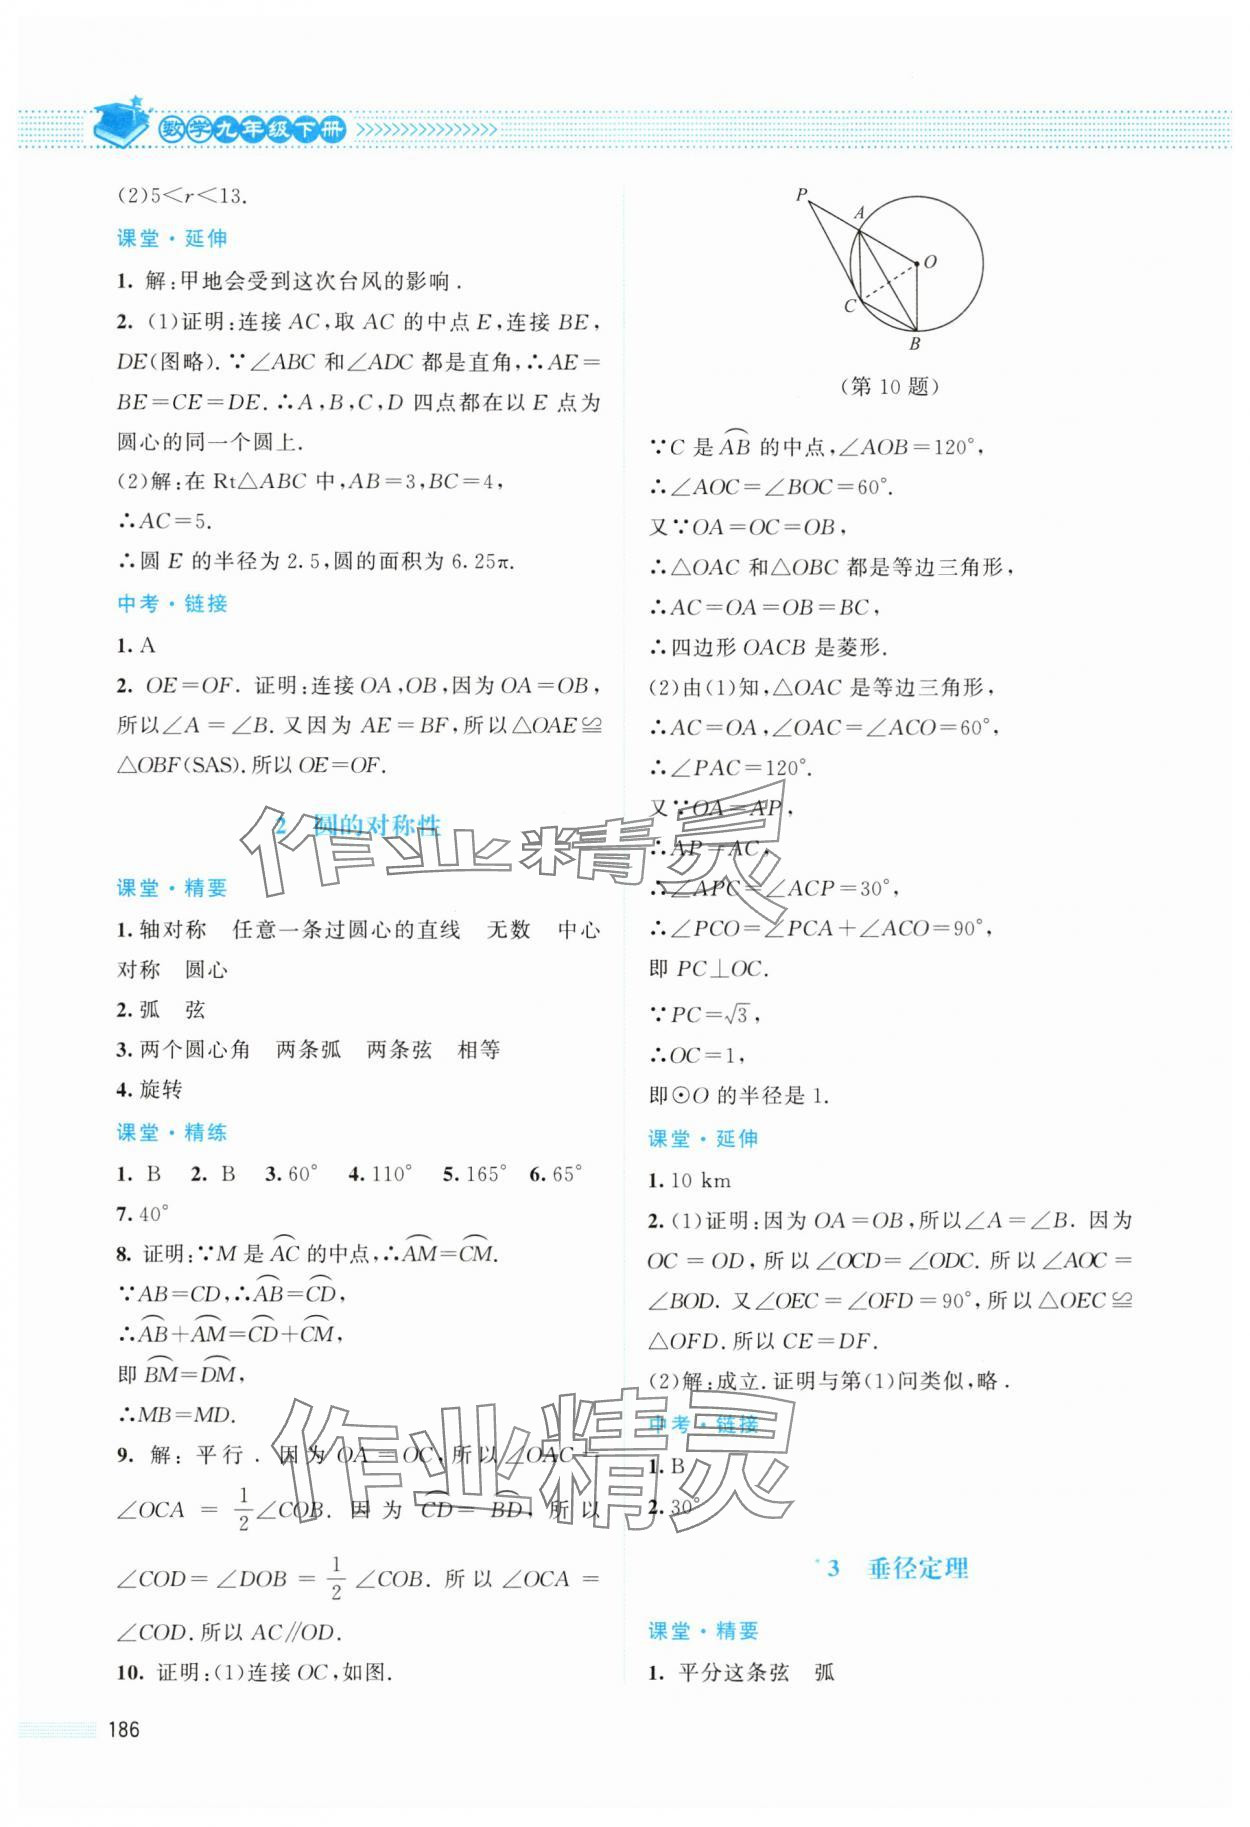 数学九年级下册
(2)5＜r＜13.
课堂·延伸
1. 解:甲地会受到这次台风的影响.
2. (1)证明:连接 AC,取 AC 的中点 E,连接 BE,
DE(图略).∵∠ABC 和∠ADC 都是直角,∴AE=
BE=CE=DE.∴A,B,C,D 四点都在以 E 点为
圆心的同一个圆上.
(2)解:在 Rt△ABC 中,AB=3,BC=4,
∴AC=5.
∴圆 E 的半径为 2.5,圆的面积为 6.25π.
中考·链接
1. A
2. OE=OF. 证明:连接 OA,OB,因为 OA=OB,
所以∠A=∠B.又因为 AE=BF,所以△OAE≌
△OBF(SAS).所以 OE=OF.
2 圆的对称性
课堂·精要
1. 轴对称 任意一条过圆心的直线 无数 中心
对称 圆心
2. 弧 弦
3. 两个圆心角 两条弧 两条弦 相等
4. 旋转
课堂·精练
1. B 2. B 3. 60° 4. 110° 5. 165° 6. 65°
7. 40°
8. 证明:∵M 是 ⌒AC 的中点,∴⌒AM=⌒CM.
∵AB=CD,∴⌒AB=⌒CD,
∴⌒AB+⌒AM=⌒CD+⌒CM,
即 ⌒BM=⌒DM,
∴MB=MD.
9. 解:平行. 因为 OA=OC,所以∠OAC=
∠OCA=1/2∠COB. 因为 ⌒CD=⌒BD,所以
∠COD=∠DOB=1/2∠COB. 所以∠OCA=
∠COD.所以 AC∥OD.
10. 证明:(1)连接 OC,如图.
P
A
O
C
B
(第 10 题)
∵C 是 ⌒AB 的中点,∠AOB=120°,
∴∠AOC=∠BOC=60°.
又∵OA=OC=OB,
∴△OAC 和△OBC 都是等边三角形,
∴AC=OA=OB=BC,
∴四边形 OACB 是菱形.
(2)由(1)知,△OAC 是等边三角形,
∴AC=OA,∠OAC=∠ACO=60°,
∴∠PAC=120°.
又∵OA=AP,
∴AP=AC,
∴∠APC=∠ACP=30°,
∴∠PCO=∠PCA+∠ACO=90°,
即 PC⊥OC.
∵PC=√3,
∴OC=1,
即⊙O 的半径是 1.
课堂·延伸
1. 10 km
2. (1)证明:因为 OA=OB,所以∠A=∠B. 因为
OC=OD,所以∠OCD=∠ODC. 所以∠AOC=
∠BOD. 又∠OEC=∠OFD=90°,所以△OEC≌
△OFD.所以 CE=DF.
(2)解:成立.证明与第(1)问类似,略.
中考·链接
1. B
2. 30°
3 垂径定理
课堂·精要
1. 平分这条弦 弧
186
作业精灵
作业精灵